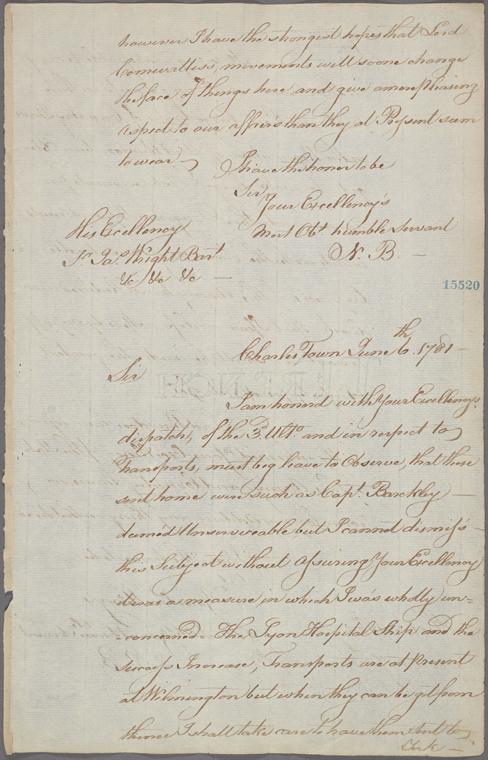 however I have the strongest hopes that Lord
Cornwallis's movements will soone change
the face of things here and give a more pleasing
aspect to our affairs than they at Present seem
to wear —
I have the honor to be
Sir
Your Excellency's
Most Obt humble Servant
N. B. —
His Excellency
Sr. Jas. Wright Bart.
&c &c &c —
15520
Charles Town June 6th. 1781 —
Sir
I am honord with Your Excellencys
dispatch, of the 3d. Ulto. and in respect to
the Transports, must beg leave to Observe, that those
sent home were such as Capt. Barckley —
deem'd Unserviceable but I cannot dismiss —
this Subject without assuring Your Excellency
it was a measure in which I was wholly un-
-concerned. The Lyon Hospital Ship and the
Success Increase, Transports are at Present
at Wilmington but when they can be got from
thence I shall take care to have them sent to
York —